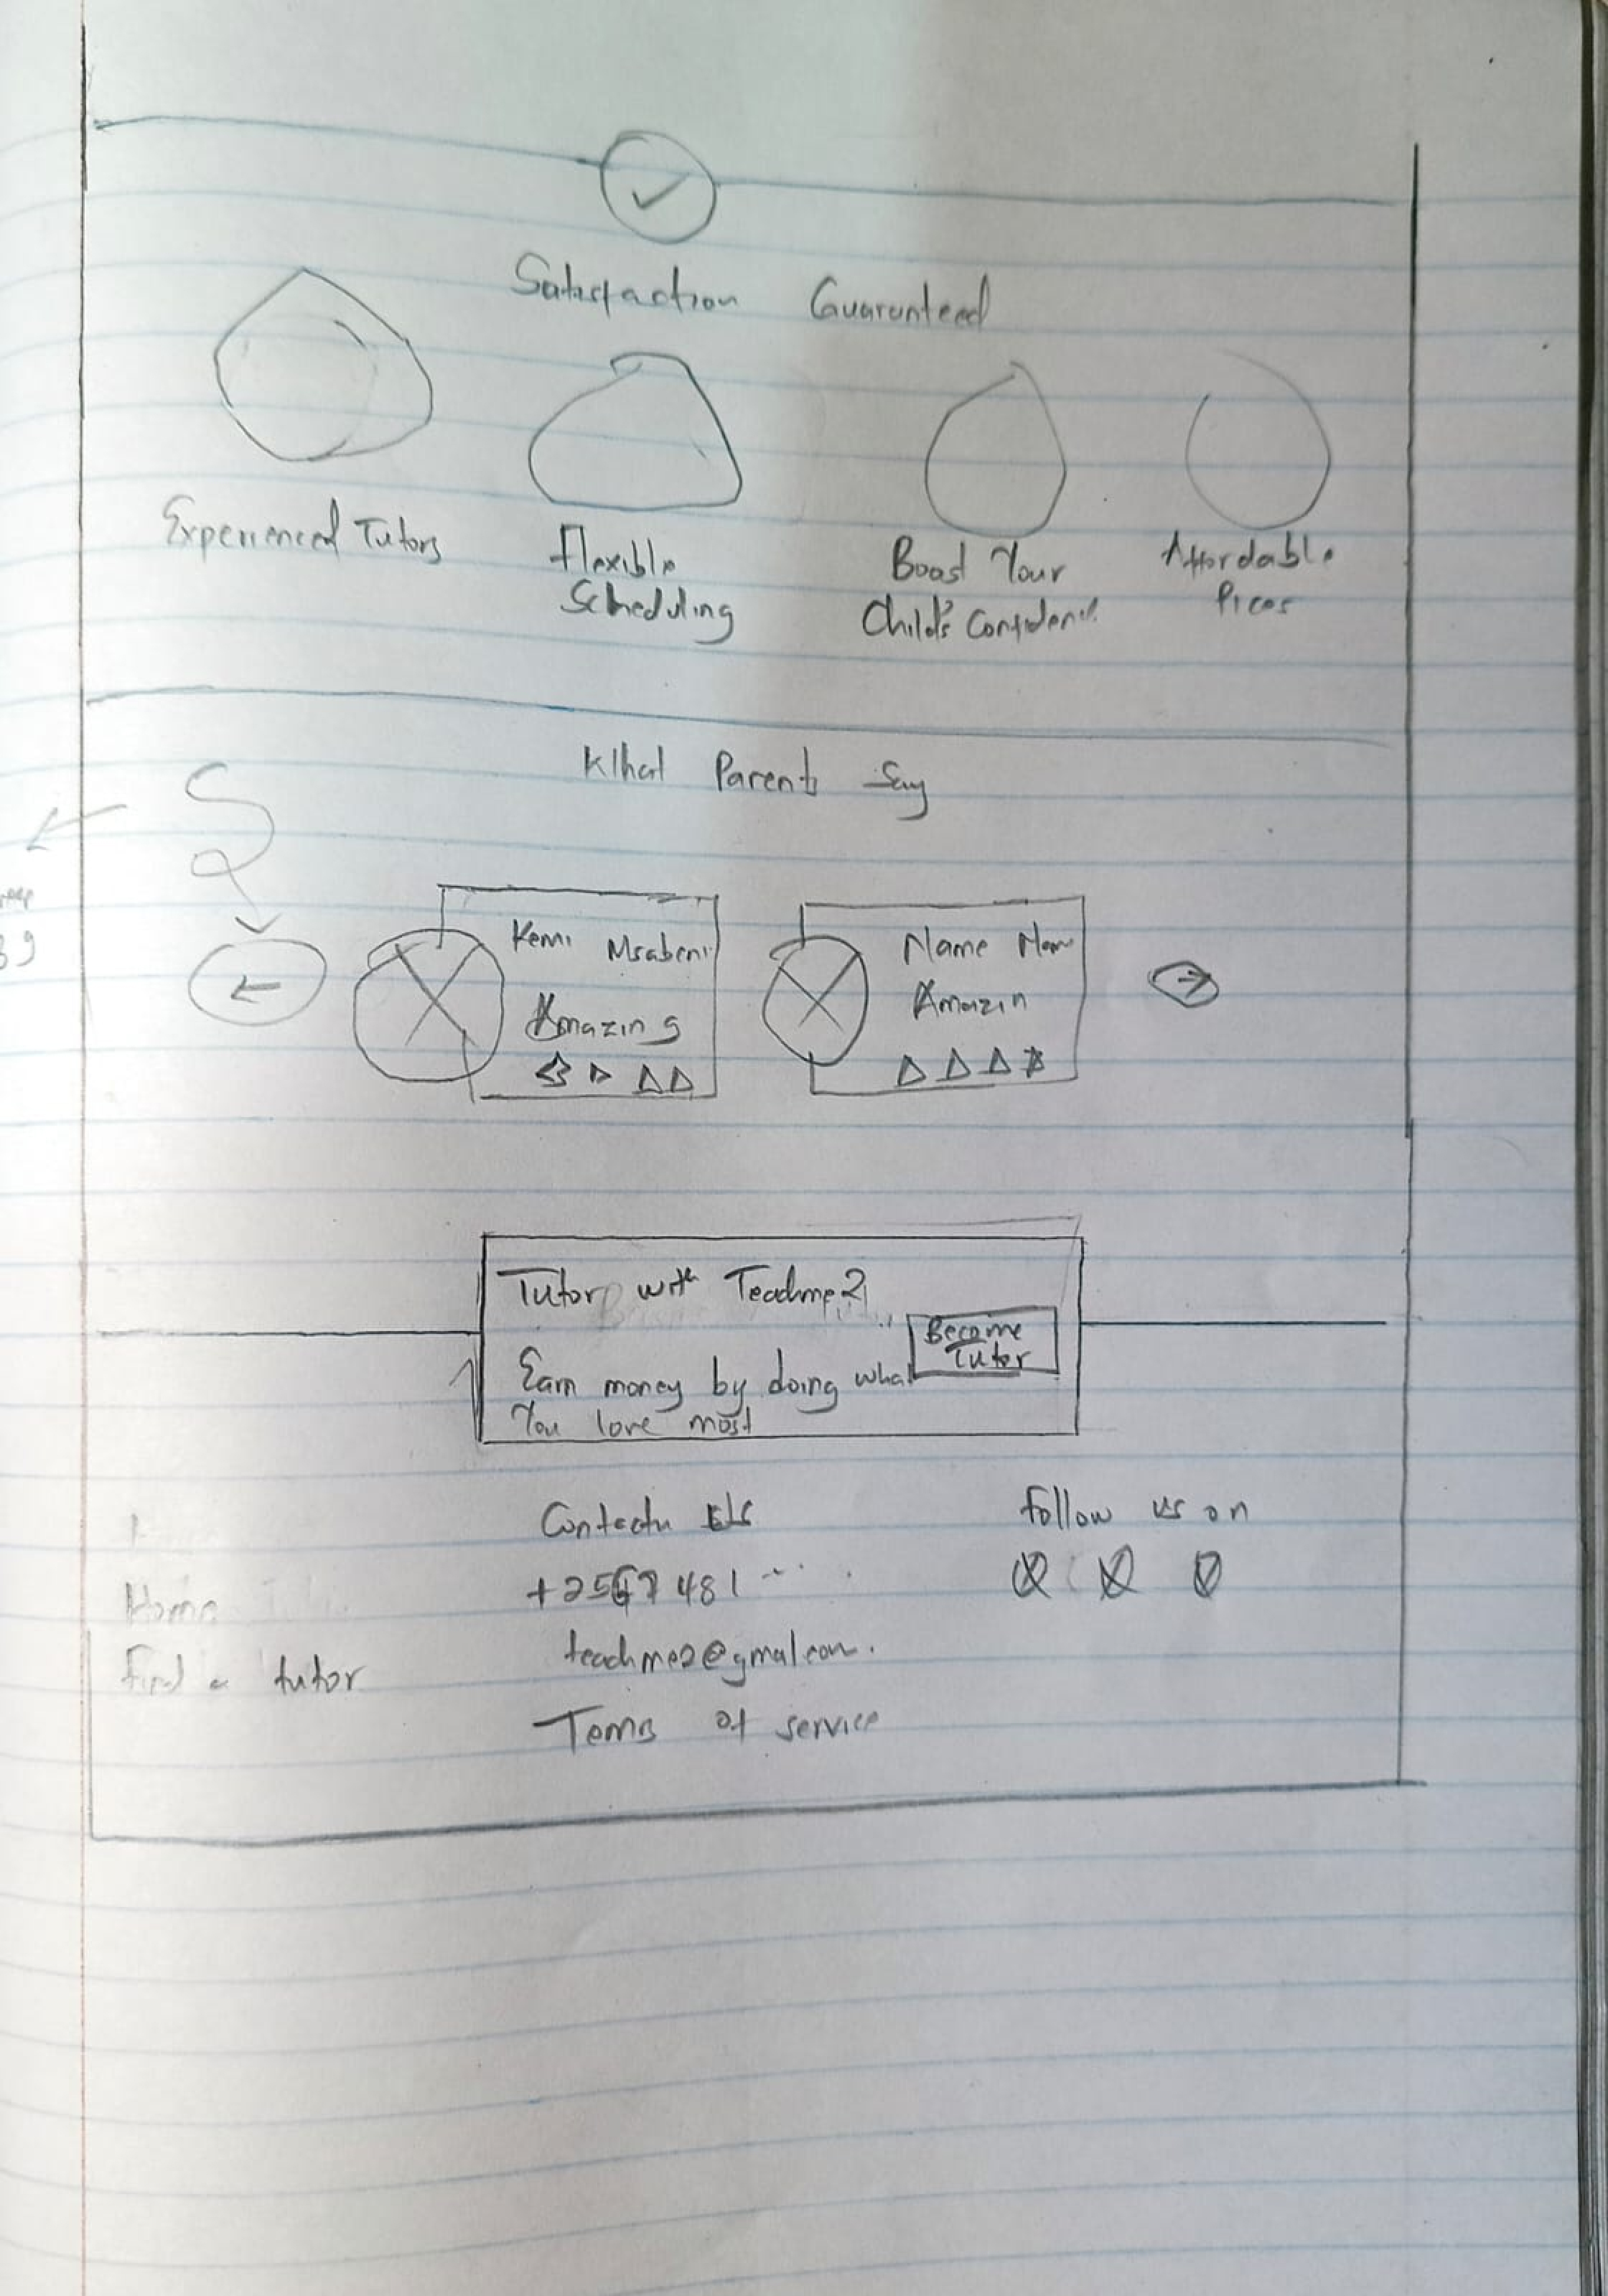 Satisfaction Guaranteed
Experienced Tutors
Flexible
Scheduling
Boost Your
Child's Confidenc
Affordable
Prices
What Parents Say
Kemi
Amazing
Name Nam
Amazin
Tutor with Teachme2
Become
Tutor
Earn money by doing what
You love most
Home
Find a tutor
Contactu Us
teachme2@gmalcom.
Terms of service
Follow us on